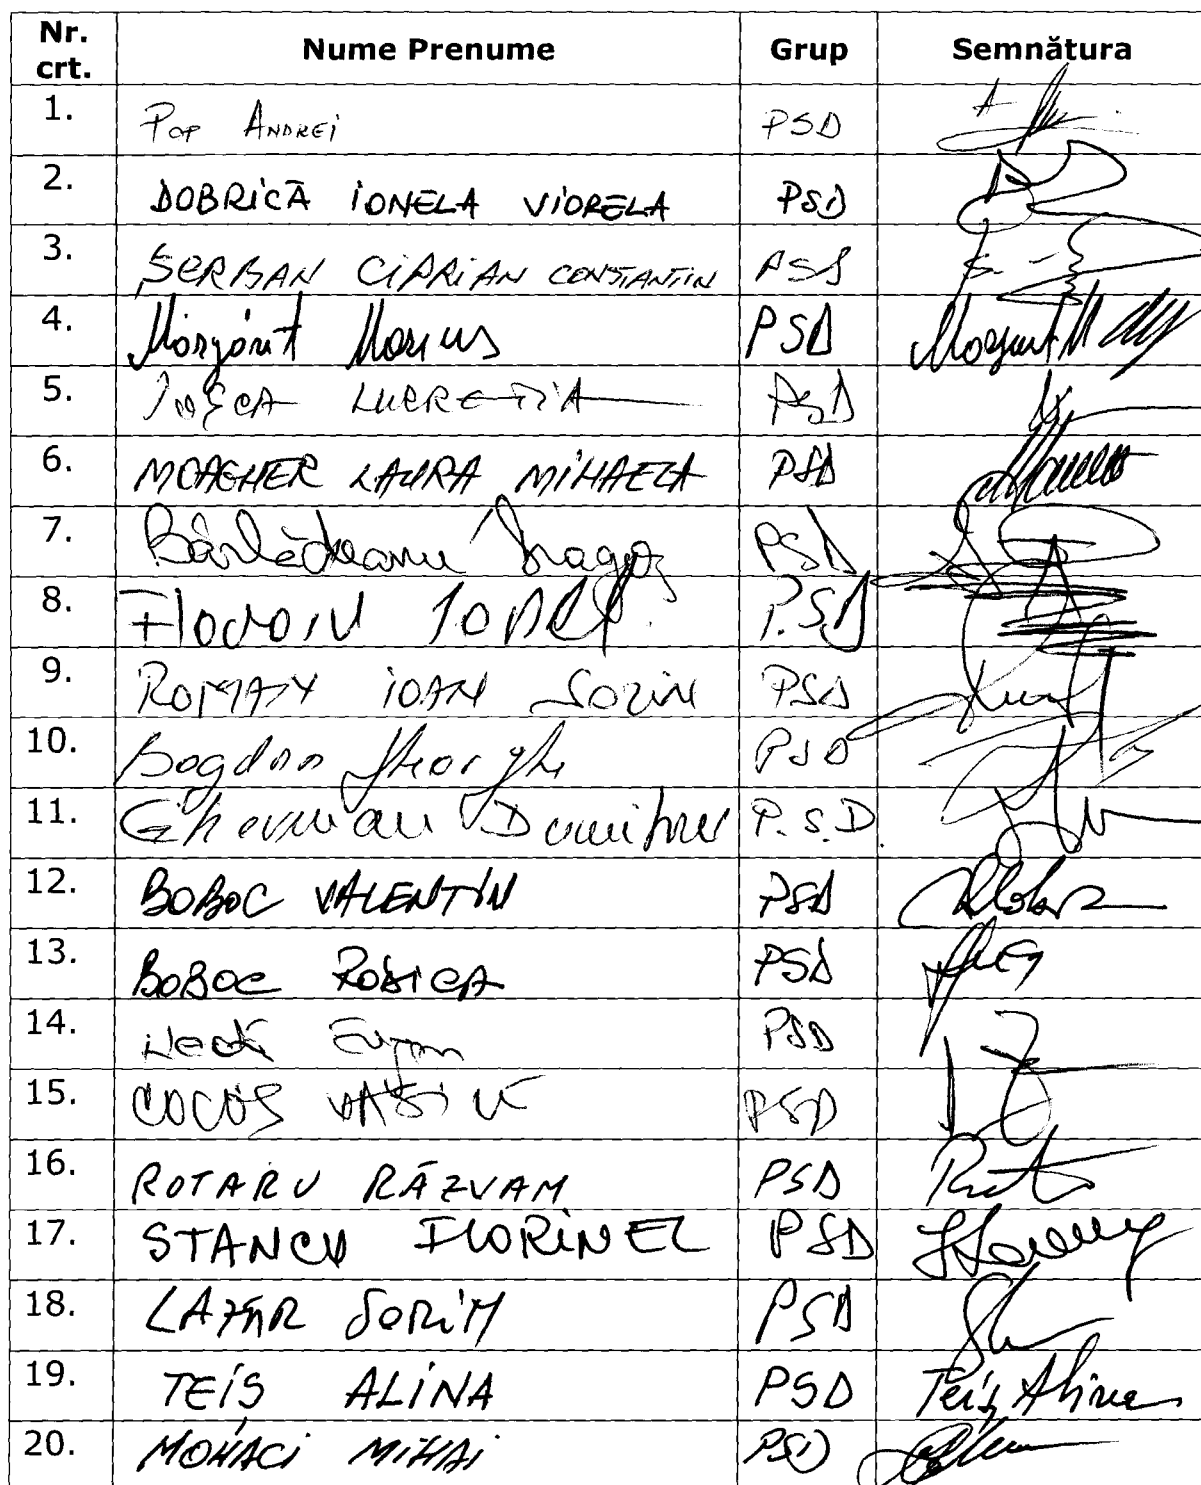 Nr. crt. Nume Prenume Grup Semnătura
1. Pop ANDREI PSD
2. DOBRICĂ IONELA VIORELA PSD
3. ȘERBAN CIPRIAN CONSTANTIN PSD
4. Mărgărit Marius PSD Margarit M
5. LUCREȚIA PSD
6. MOAGHER LAURA MIHAELA PSD
7. Bârlădeanu Dragoș PSD
8. P.S.D
9. ROMAN IOAN Sorin PSD
10. Bogdan Gheorghe PSD
11. Gherman Dumitru P.S.D
12. BOBOC VALENTIN PSD
13. BOBOC RODICA PSD
14. PSD
15. COCOȘ VASILE PSD
16. ROTARU RĂZVAN PSD
17. STANCU FLORINEL PSD
18. LAZĂR SORIN PSD
19. TEIȘ ALINA PSD Teiș Alina
20. MOHACI MIHAI PSD